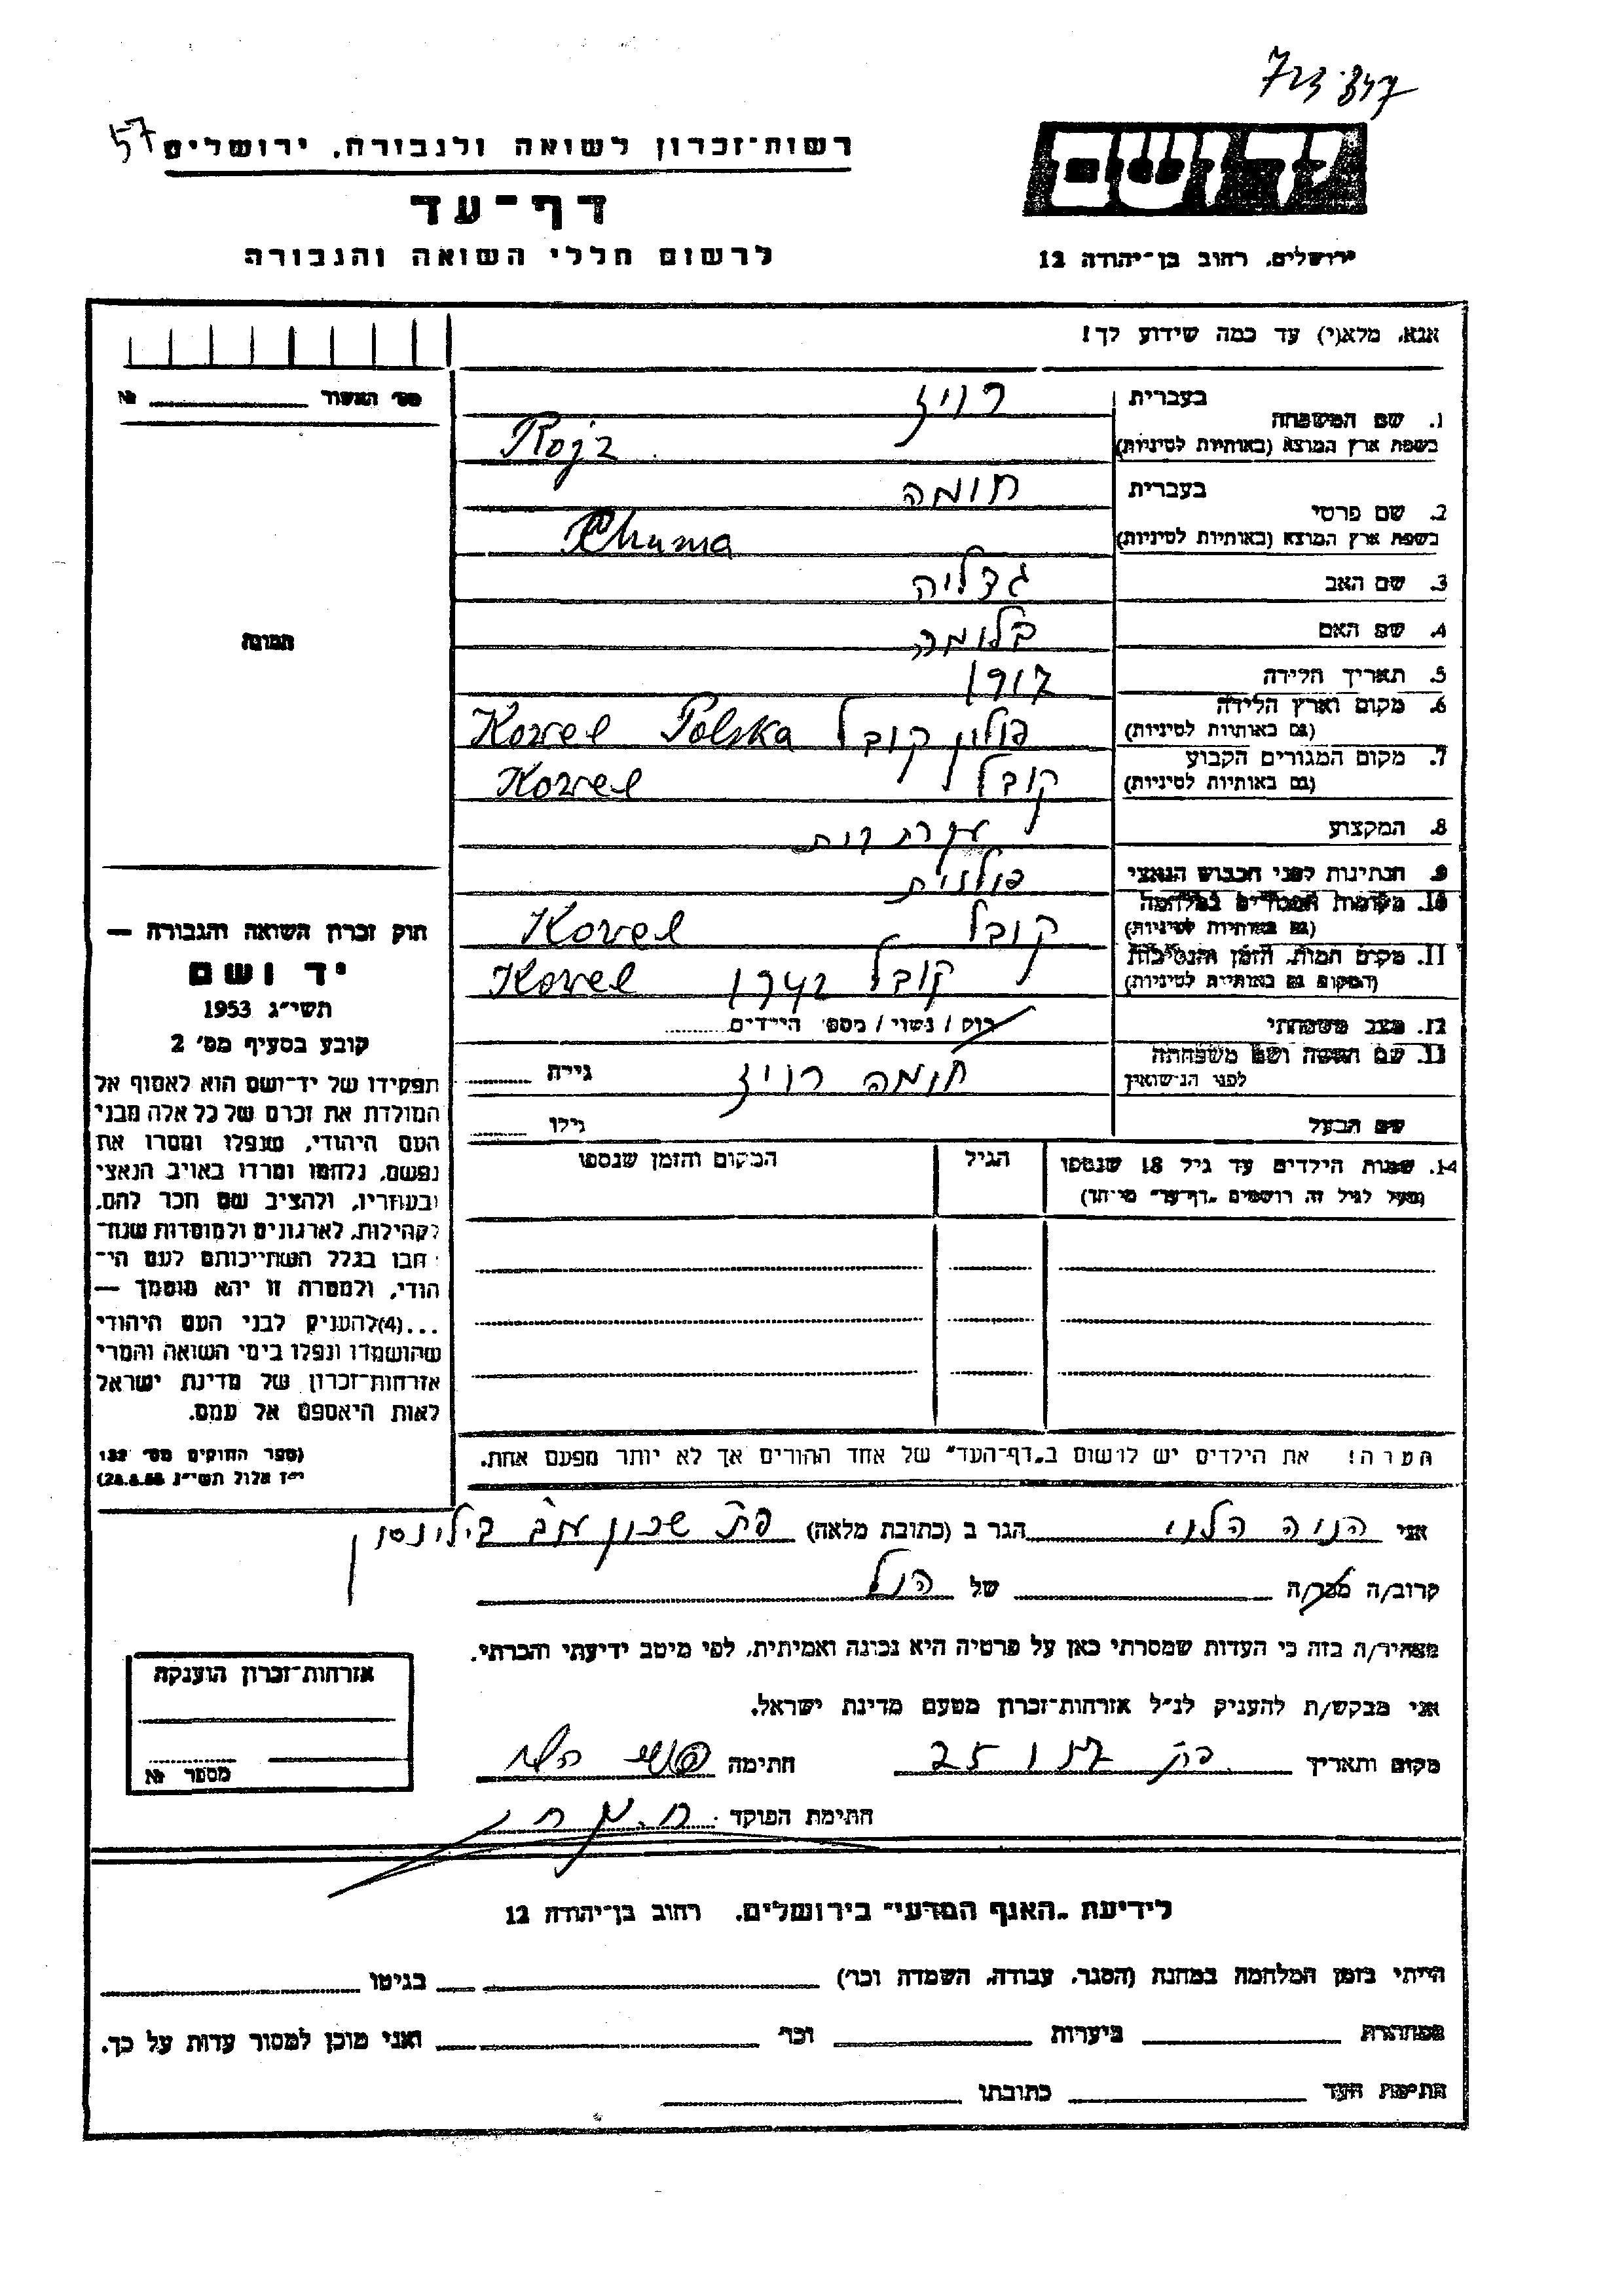 723.847
57
רשות־זכרון לשואה ולגבורה, ירושלים
יד ושם
דף־עד
לרשום חללי השואה והגבורה
ירושלים, רחוב בן־יהודה 12
אנא, מלא(י) עד כמה שידוע לך!
מס׳ האשור № 
1. שם המשפחה
בעברית רויז
בשפת ארץ המוצא (באותיות לטיניות) Rojz
2. שם פרטי
בעברית חומה
בשפת ארץ המוצא (באותיות לטיניות) Chuma
3. שם האב גדליה
4. שם האם בלומה
תמונה
5. תאריך הלידה
6. מקום וארץ הלידה
(גם באותיות לטיניות) פולין קובל Kowel Polska
7. מקום המגורים הקבוע
(גם באותיות לטיניות) קובל Kowel
8. המקצוע עקרת בית
9. הנתינות לפני הכבוש הנאצי פולנית
10. מקומות המגורים במלחמה
(גם באותיות לטיניות) קובל Kovel
11. מקום המות, הזמן והנסיבות
(המקום גם באותיות לטיניות) קובל 1942 Kovel
12. מצב משפחתי רוק / נשוי / מספר הילדים
13. שם האשה ושם משפחתה
לפני הנישואין חומה רויז גילה
שם הבעל גילו
14. שמות הילדים עד גיל 18 שנספו הגיל המקום והזמן שנספו
(מעל לגיל זה רושמים „דף־עד״ מיוחד)
חוק זכרון השואה והגבורה —
יד ושם
תשי״ג 1953
קובע בסעיף מס׳ 2
תפקידו של יד־ושם הוא לאסוף אל
המולדת את זכרם של כל אלה מבני
העם היהודי, שנפלו ומסרו את
נפשם, נלחמו ומרדו באויב הנאצי
ובעוזריו, ולהציב שם וזכר להם,
לקהילות, לארגונים ולמוסדות שנח־
רבו בגלל השתייכותם לעם הי־
הודי, ולמטרה זו יהא מוסמך —
...(4) להעניק לבני העם היהודי
שהושמדו ונפלו בימי השואה והמרי
אזרחות־זכרון של מדינת ישראל
לאות היאספם אל עמם.
(ספר החוקים מס׳ 132
י״ז אלול תשי״ג 28.8.53)
הערה! את הילדים יש לרשום ב„דף־העד״ של אחד ההורים אך לא יותר מפעם אחת.
אני הניה הלוי הגר ב (כתובת מלאה) פת שכון בילינסון
קרוב/ה מכר/ה של הנ״ל
מצהיר/ה בזה כי העדות שמסרתי כאן על פרטיה היא נכונה ואמיתית, לפי מיטב ידיעתי והכרתי.
אני מבקש/ת להעניק לנ״ל אזרחות־זכרון מטעם מדינת ישראל.
מקום ותאריך חתימה
חתימת הפוקד
אזרחות־זכרון הוענקה
מספר №
לידיעת „האגף המדעי״ בירושלים, רחוב בן־יהודה 12
הייתי בזמן המלחמה במחנה (הסגר, עבודה, השמדה וכו׳) בגיטו
במחתרת ביערות וכו׳ ואני מוכן למסור עדות על כך.
חתימת העד כתובתו